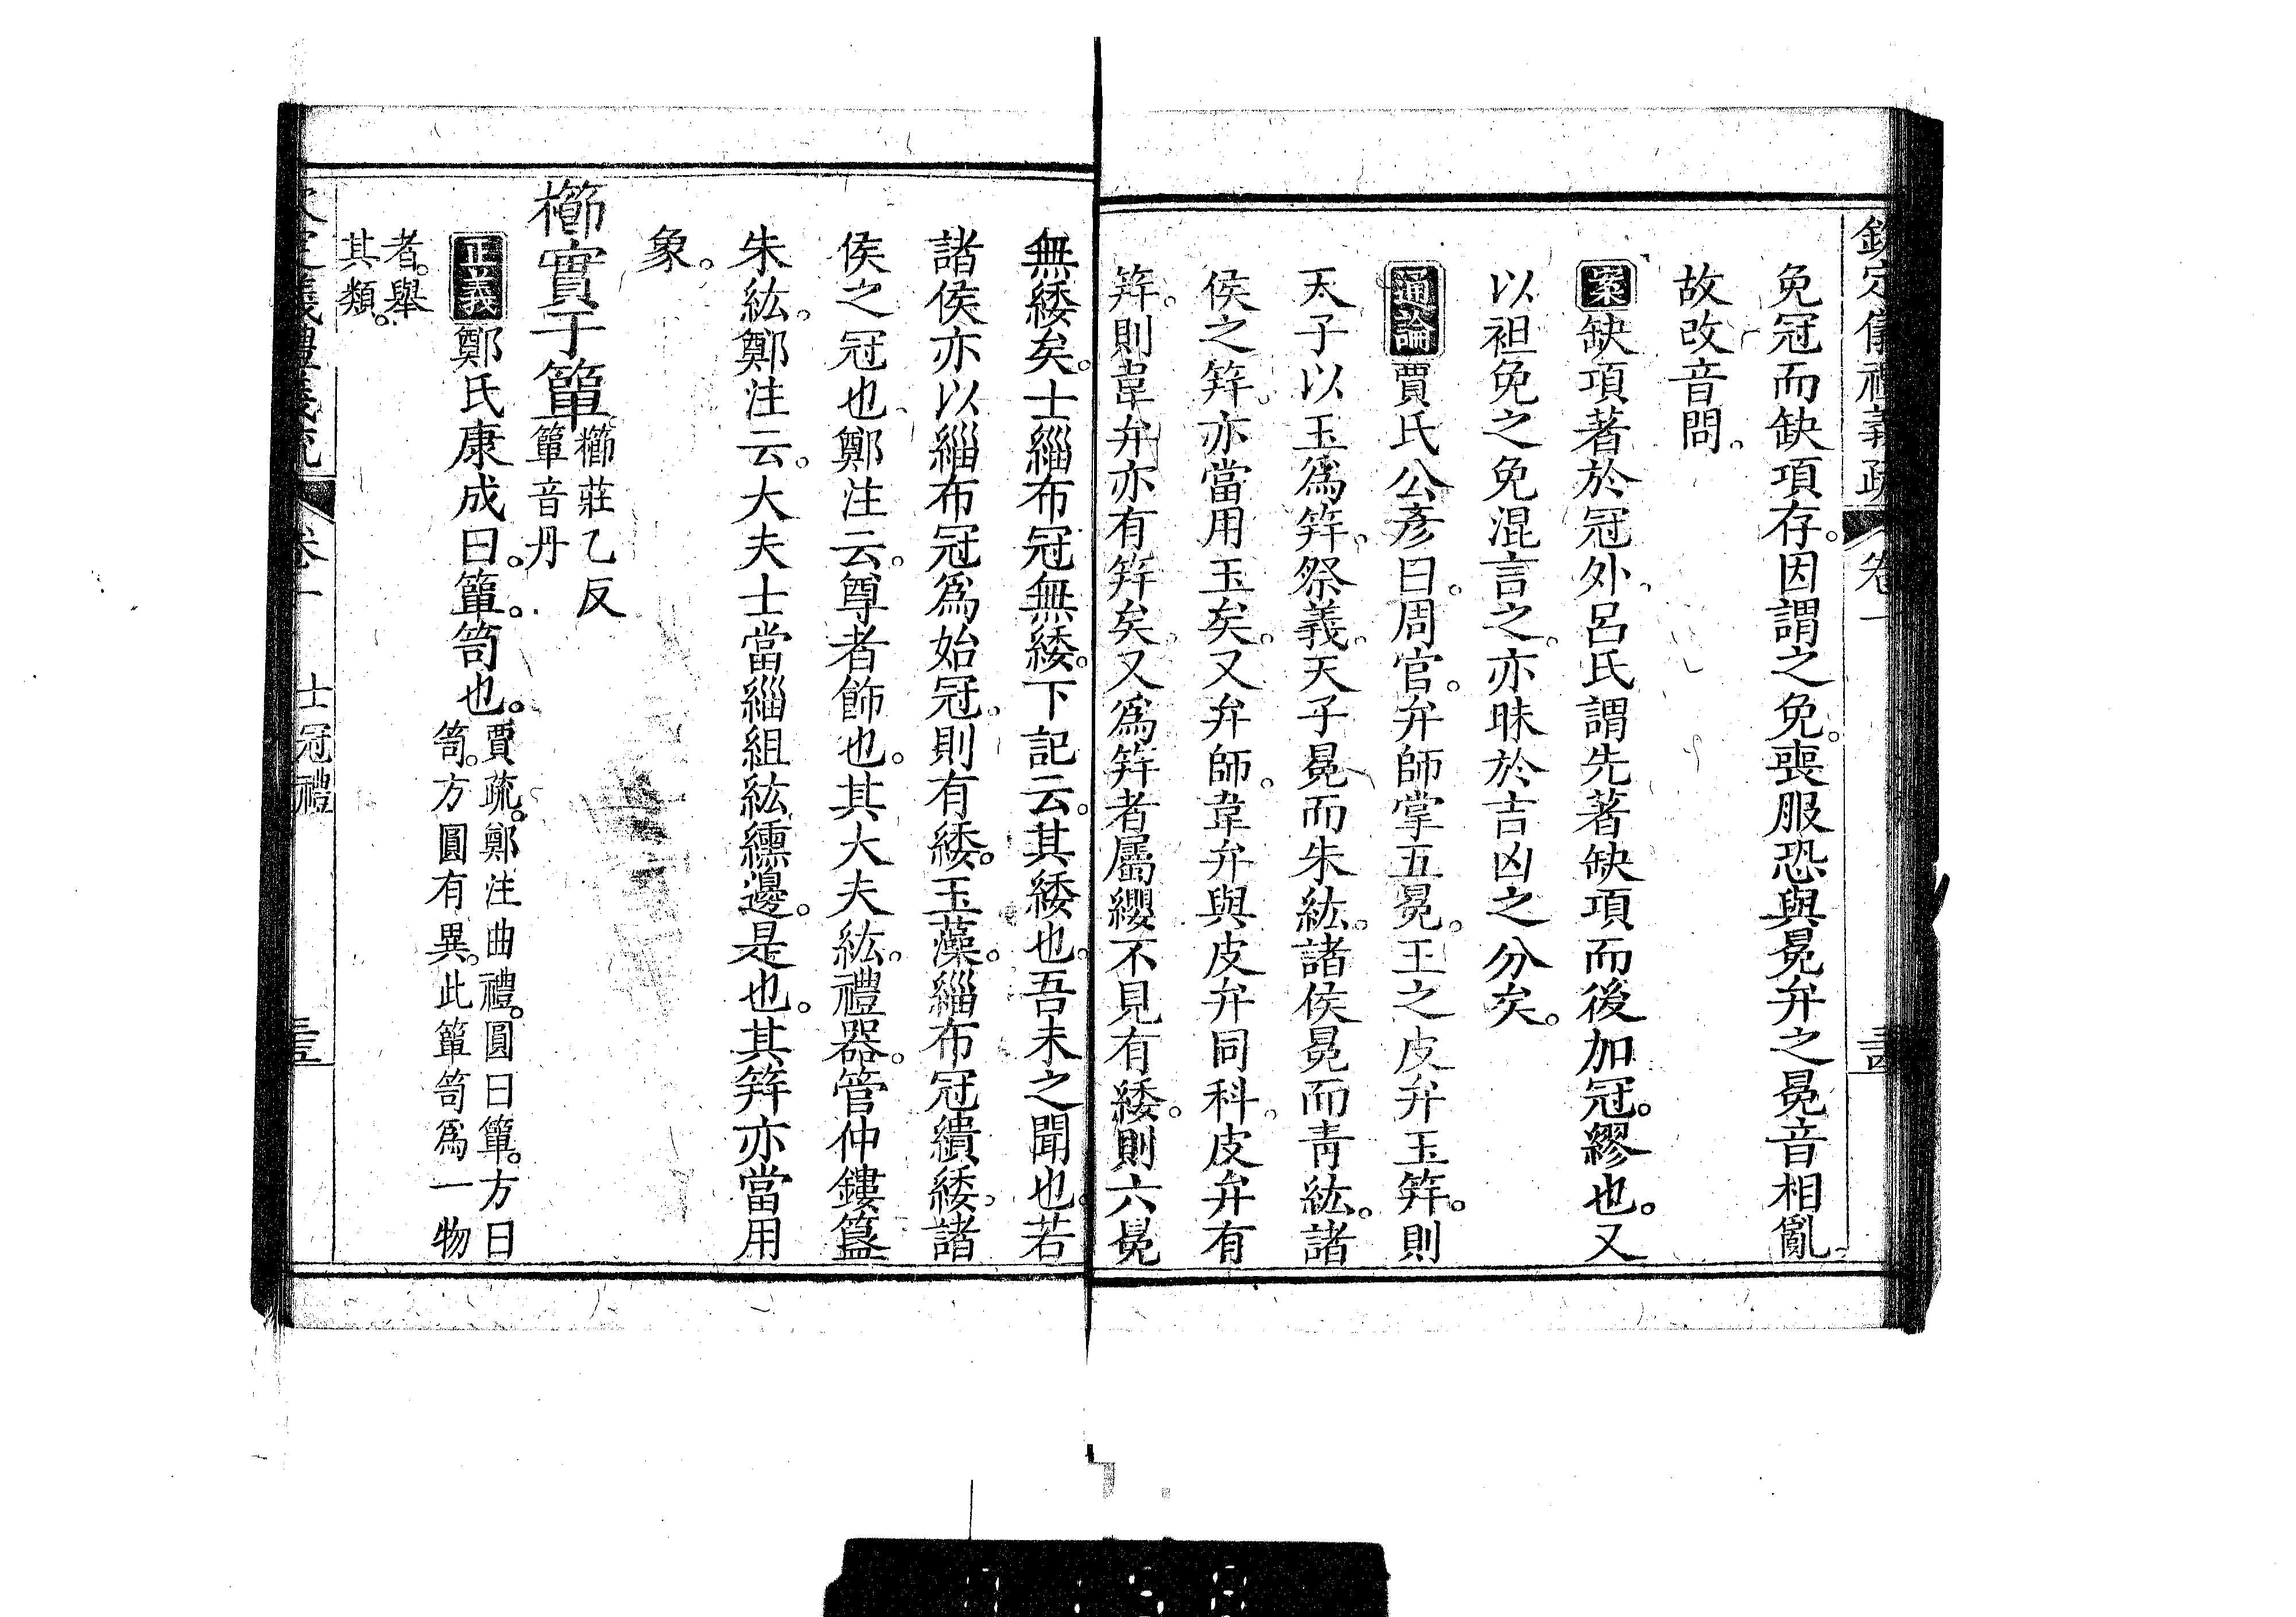 欽定儀禮義疏 卷一
免冠而缺項存。因謂之免。喪服恐與冕弁之冕音相亂。
故改音問。
案缺項著於冠外、呂氏謂先著缺項而後加冠。繆也。又
以袒免之免混言之。亦昧於吉凶之分矣。
通論賈氏公彥曰。周官。弁師掌五冕。王之皮弁玉笄。則
天子以玉爲笄。祭義。天子冕而朱紘。諸侯冕而青紘。諸
侯之笄。亦當用玉矣。又弁師。韋弁與皮弁同科。皮弁有
笄。則韋弁亦有笄矣。又爲笄者屬纓不見有緌。則六冕
無緌矣。士緇布冠無緌。下記云。其緌也。吾未之聞也。若
諸侯亦以緇布冠爲始冠。則有緌。玉藻。緇布冠繢緌。諸
侯之冠也、鄭注云。尊者飾也。其大夫紘。禮器。管仲鏤簋
朱紘。鄭注云。大夫士當緇組紘纁邊。是也。其笄亦當用
象。
櫛實于簞
櫛莊乙反
簞音丹
正義鄭氏康成曰。簞。笥也。
賈疏。鄭注曲禮。圓曰簞。方曰
笥。方圓有異。此簞笥爲一物
者。舉
其類。
欽定儀禮義疏 卷一 士冠禮